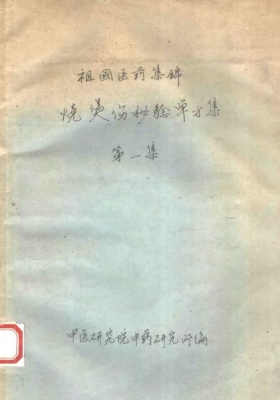 祖國医药集锦
烧烫伤秘验单方集
第一集
中医研究院中药研究所编